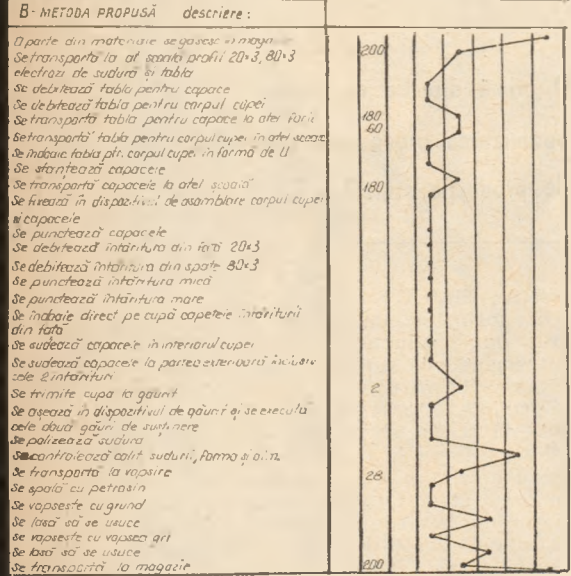 B- METODA PROPUSĂ descriere:
O parte din materiale se găsesc în maga
Se transportă la at scoală profil 20×3, 80×3
electrozi de sudură și tabla
Se debitează tabla pentru capace
Se debitează tabla pentru corpul cupei
Se transportă tabla pentru capace la atel forjă
Se transportă tabla pentru corpul cupei în atel scoală
Se îndoaie tabla ptr. corpul cupei în formă de U
Se ștanțează capacele
Se transportă capacele la atel școală
Se fixează în dispozitivul de asamblare corpul cupei
și capacele
Se punctează capacele
Se debitează întăritura din față 20×3
Se debitează întăritura din spate 80×3
Se punctează întăritura mică
Se punctează întăritura mare
Se îndoaie direct pe cupă capetele întăriturii
din față
Se sudează capacele în interiorul cupei
Se sudează capacele la partea exterioară inclusiv
cele 2 întărituri
Se trimite cupa la găurit
Se așează în dispozitivul de găurit și se execută
cele două găuri de susținere
Se polizează sudura
Se controlează calit. sudurii, forma și dim.
Se transportă la vopsire
Se spală cu petrosin
Se vopsește cu grund
Se lasă să se usuce
Se vopsește cu vopsea gri
Se lasă să se usuce
Se transportă la magazie
200
180
60
180
2
28
200